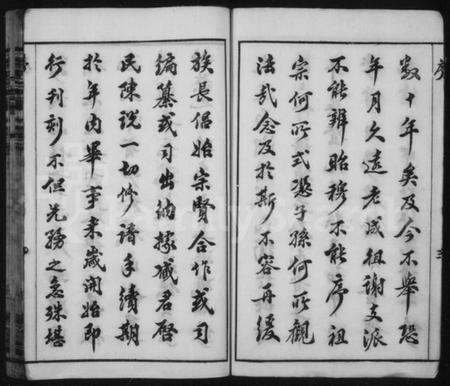 序
數十年矣及今不舉恐
年月久遠老成徂謝支派
不能辨昭穆不能序祖
宗何所式憑子孫何所觀
法哉念及於斯不容再緩
族長侶始宗賢合作或司
編纂或司出納據咸君啓
民陳說一切修譜手續期
於年內畢事來歲開始即
行刊刻不但先務之急殊堪